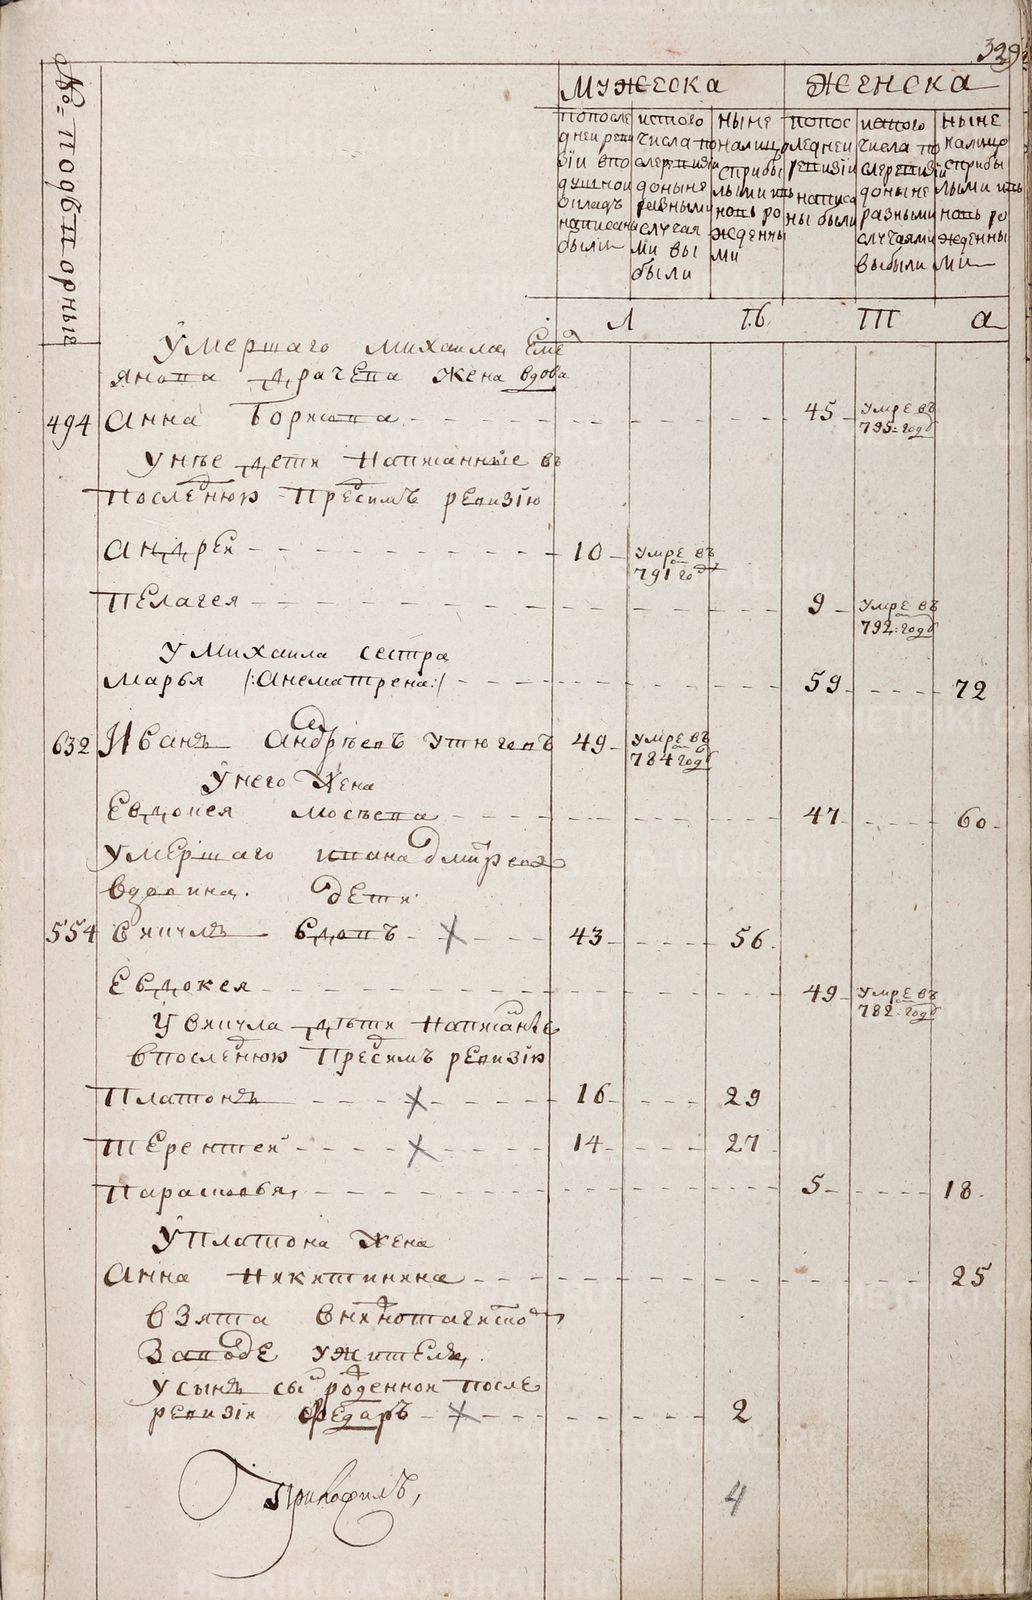 329
№ подворныя
Мужеска
Женска
попосле дней ревизїи вподушной окладъ написаны были
истого числа послеревизїи доныне разными случаями выбыли
ныне налицо сприбылыми ивновь рожденными
попоследней ревизїи написаны были
истого числа послеревизїи доныне разными случаями выбыли
ныне налицо сприбылыми ивновь рожденными
Л Т.б ТП а
Умершаго михаила Еме
янова Драчева жена вдова
494 Анна 45 Умре въ 795: годѣ
Унѣе дети написанные въ
последнюю предсимъ ревизїю
Андреи 10 умре въ 791 годѣ
Пелагея 9 Умре въ 792: годѣ
Умихаила сестра
Марья /:Анематрена:/ 59 72
632 Иванъ Андрѣевъ Утюгевъ 49 умре въ 784 годѣ
Унего жена
Евдокея Мосѣева 47 60
Умершаго ивана дмитреева
вдовина дети
554 Викулъ Вдовъ 43 56
Евдокея 49 Умре въ 782: годѣ
У викула дѣти написанные
впоследнюю предсимъ ревизїю
Платонъ 16 29
Терентей 14 27
Парасковья 5 18
Уплатона жена
Анна Никитинина 25
взята
заводе ужителя
усынъ рожденной после
ревизїи Федаръ 2
4